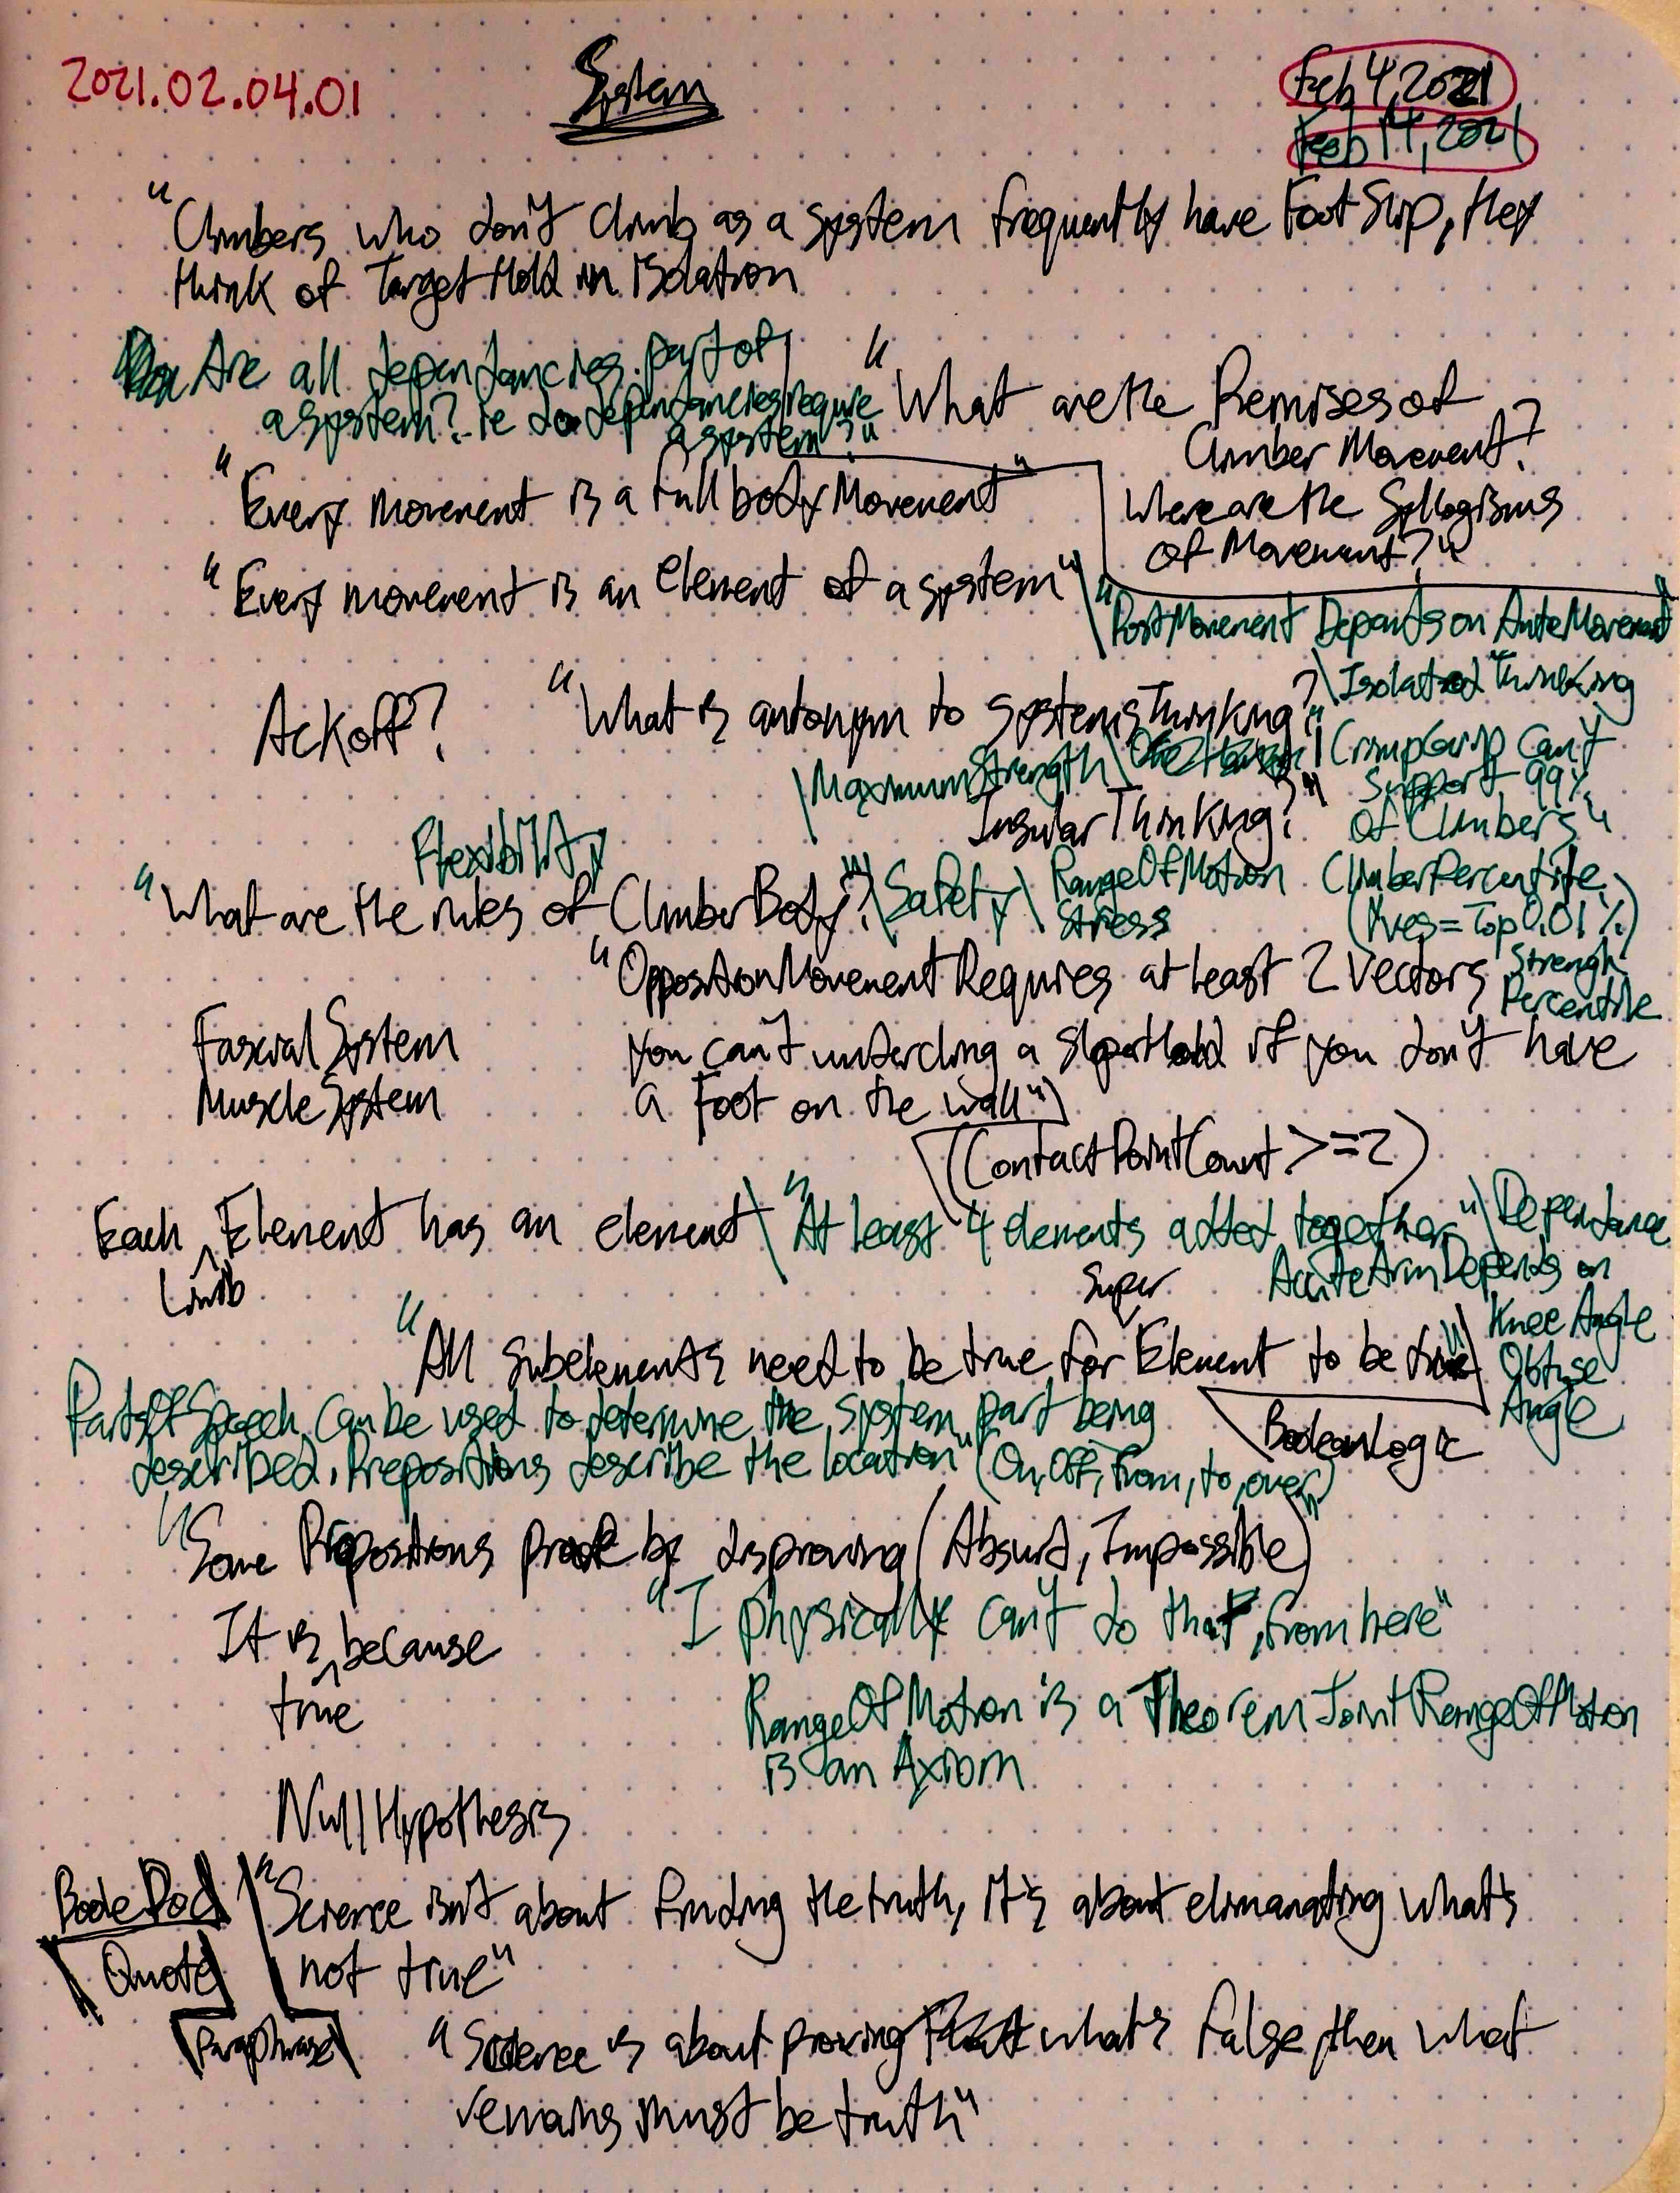 2021.02.04.01
System
Feb 4, 2021
Feb 14, 2021
"Climbers who don't climb as a system frequently have FootSlip, they
think of TargetHold in isolation
Are all dependancies part of
a system? ie do dependancies require
a system?"
"What are the Premises of
Climber Movement?
Where are the Syllogisms
Of Movement?"
"Every movement is a full body Movement"
"Every movement is an Element of a system"
"PostMovement Depends on AnteMovement"
Ackoff?
"What is antonym to SystemsThinking?
\IsolatedThinking
\MaximumStrength
InsularThinking?"
CrimpGrip Can't
Support 99%
of Climbers"
Flexibility
"What are the rules of ClimberBody?"\Safety\
RangeOfMotion
Stress
ClimberPercentile
(Yves = Top 0.01%)
Strengh
Percentile
"OppositionMovement Requires at least 2 Vectors
you can't undercling a SloperHold if you don't have
a Foot on the wall"
(ContactPointCount >= 2)
Fascial System
Muscle System
Each Limb Element has an element
\"At least 4 elements added together"
\Dependance
AcuteArm Depends on
Knee Angle
Obtuse
Angle
"All subelements need to be true for Super Element to be true"
BooleanLogic
PartsOfSpeech Can be used to determine the system part being
described. Prepositions describe the location" (On, Off, From, to, over)
"Some Propositions prove by disproving (Absurd, Impossible)"
It is true because
"I physically can't do that, from here"
RangeOfMotion is a Theorem JointRangeOfMotion
is an Axiom
NullHypothesis
Quote
Paraphrase
"Science isn't about finding the truth, it's about elimanating what's
not true"
"Science is about proving what's false, then what
remains must be truth"